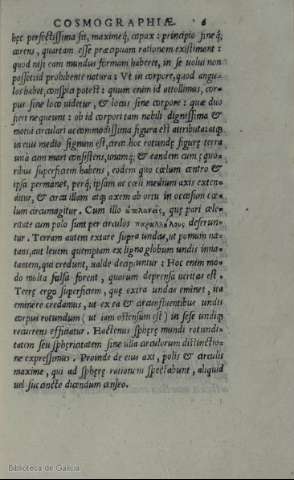 COSMOGRAPHIÆ 6
hęc perfectissima sit, maximeq́; capax: principio fineq́;
carens, quartam esse præcipuam rationem existiment:
quod nisi eam mundus formam haberet, in se uolui non
possit id prohibente natura: Vt in corpore, quod angu-
los habet, conspici potest: quum enim id attollimus, cor-
pus sine loco uidetur, & locus sine corpore: quæ duo
fieri nequeunt: ob id corpori tam nobili dignissima &
motui circulari accommodatissima figura est attributa: atq́;
in eius medio signum est, circa hoc rotundę figurę terra
unà cum mari consistens, unamq́; & eandem cum
ribus superficiem habens, eodem quo cœlum centro &
ipsa permanet, perq́; ipsam ac cœli medium axis exten-
ditur, & circa illam atq́; axem ab ortu in occasum cœ-
lum circumagitur. Cum illo ἀπλανεῖς, quę pari cele-
ritate cum polo sunt per circulos παραλλήλους deferun-
tur. Terram autem extare supra undas, ut pomum na-
tans, aut leuem quempiam ex ligno globum undis inna-
tantem, qui credunt, ualde decipiuntur: Hoc enim mo-
do multa falsa forent, quorum deprensa ueritas est.
Terrę ergo superficiem, quę extra undas eminet, ita
eminere credamus, ut ex ea & circumfluentibus undis
corpus rotundum (ut iam ostensum est) in sese undiq́;
recurrens efficiatur. Hactenus sphęrę mundi rotundi-
tatem seu sphęricitatem sine ulla circulorum distinctio-
ne expressimus. Proinde de eius axi, polis & circulis
maxime, qui ad sphęrę rationem spectabunt, aliquid
uel succincte dicendum censeo.
Biblioteca de Galicia